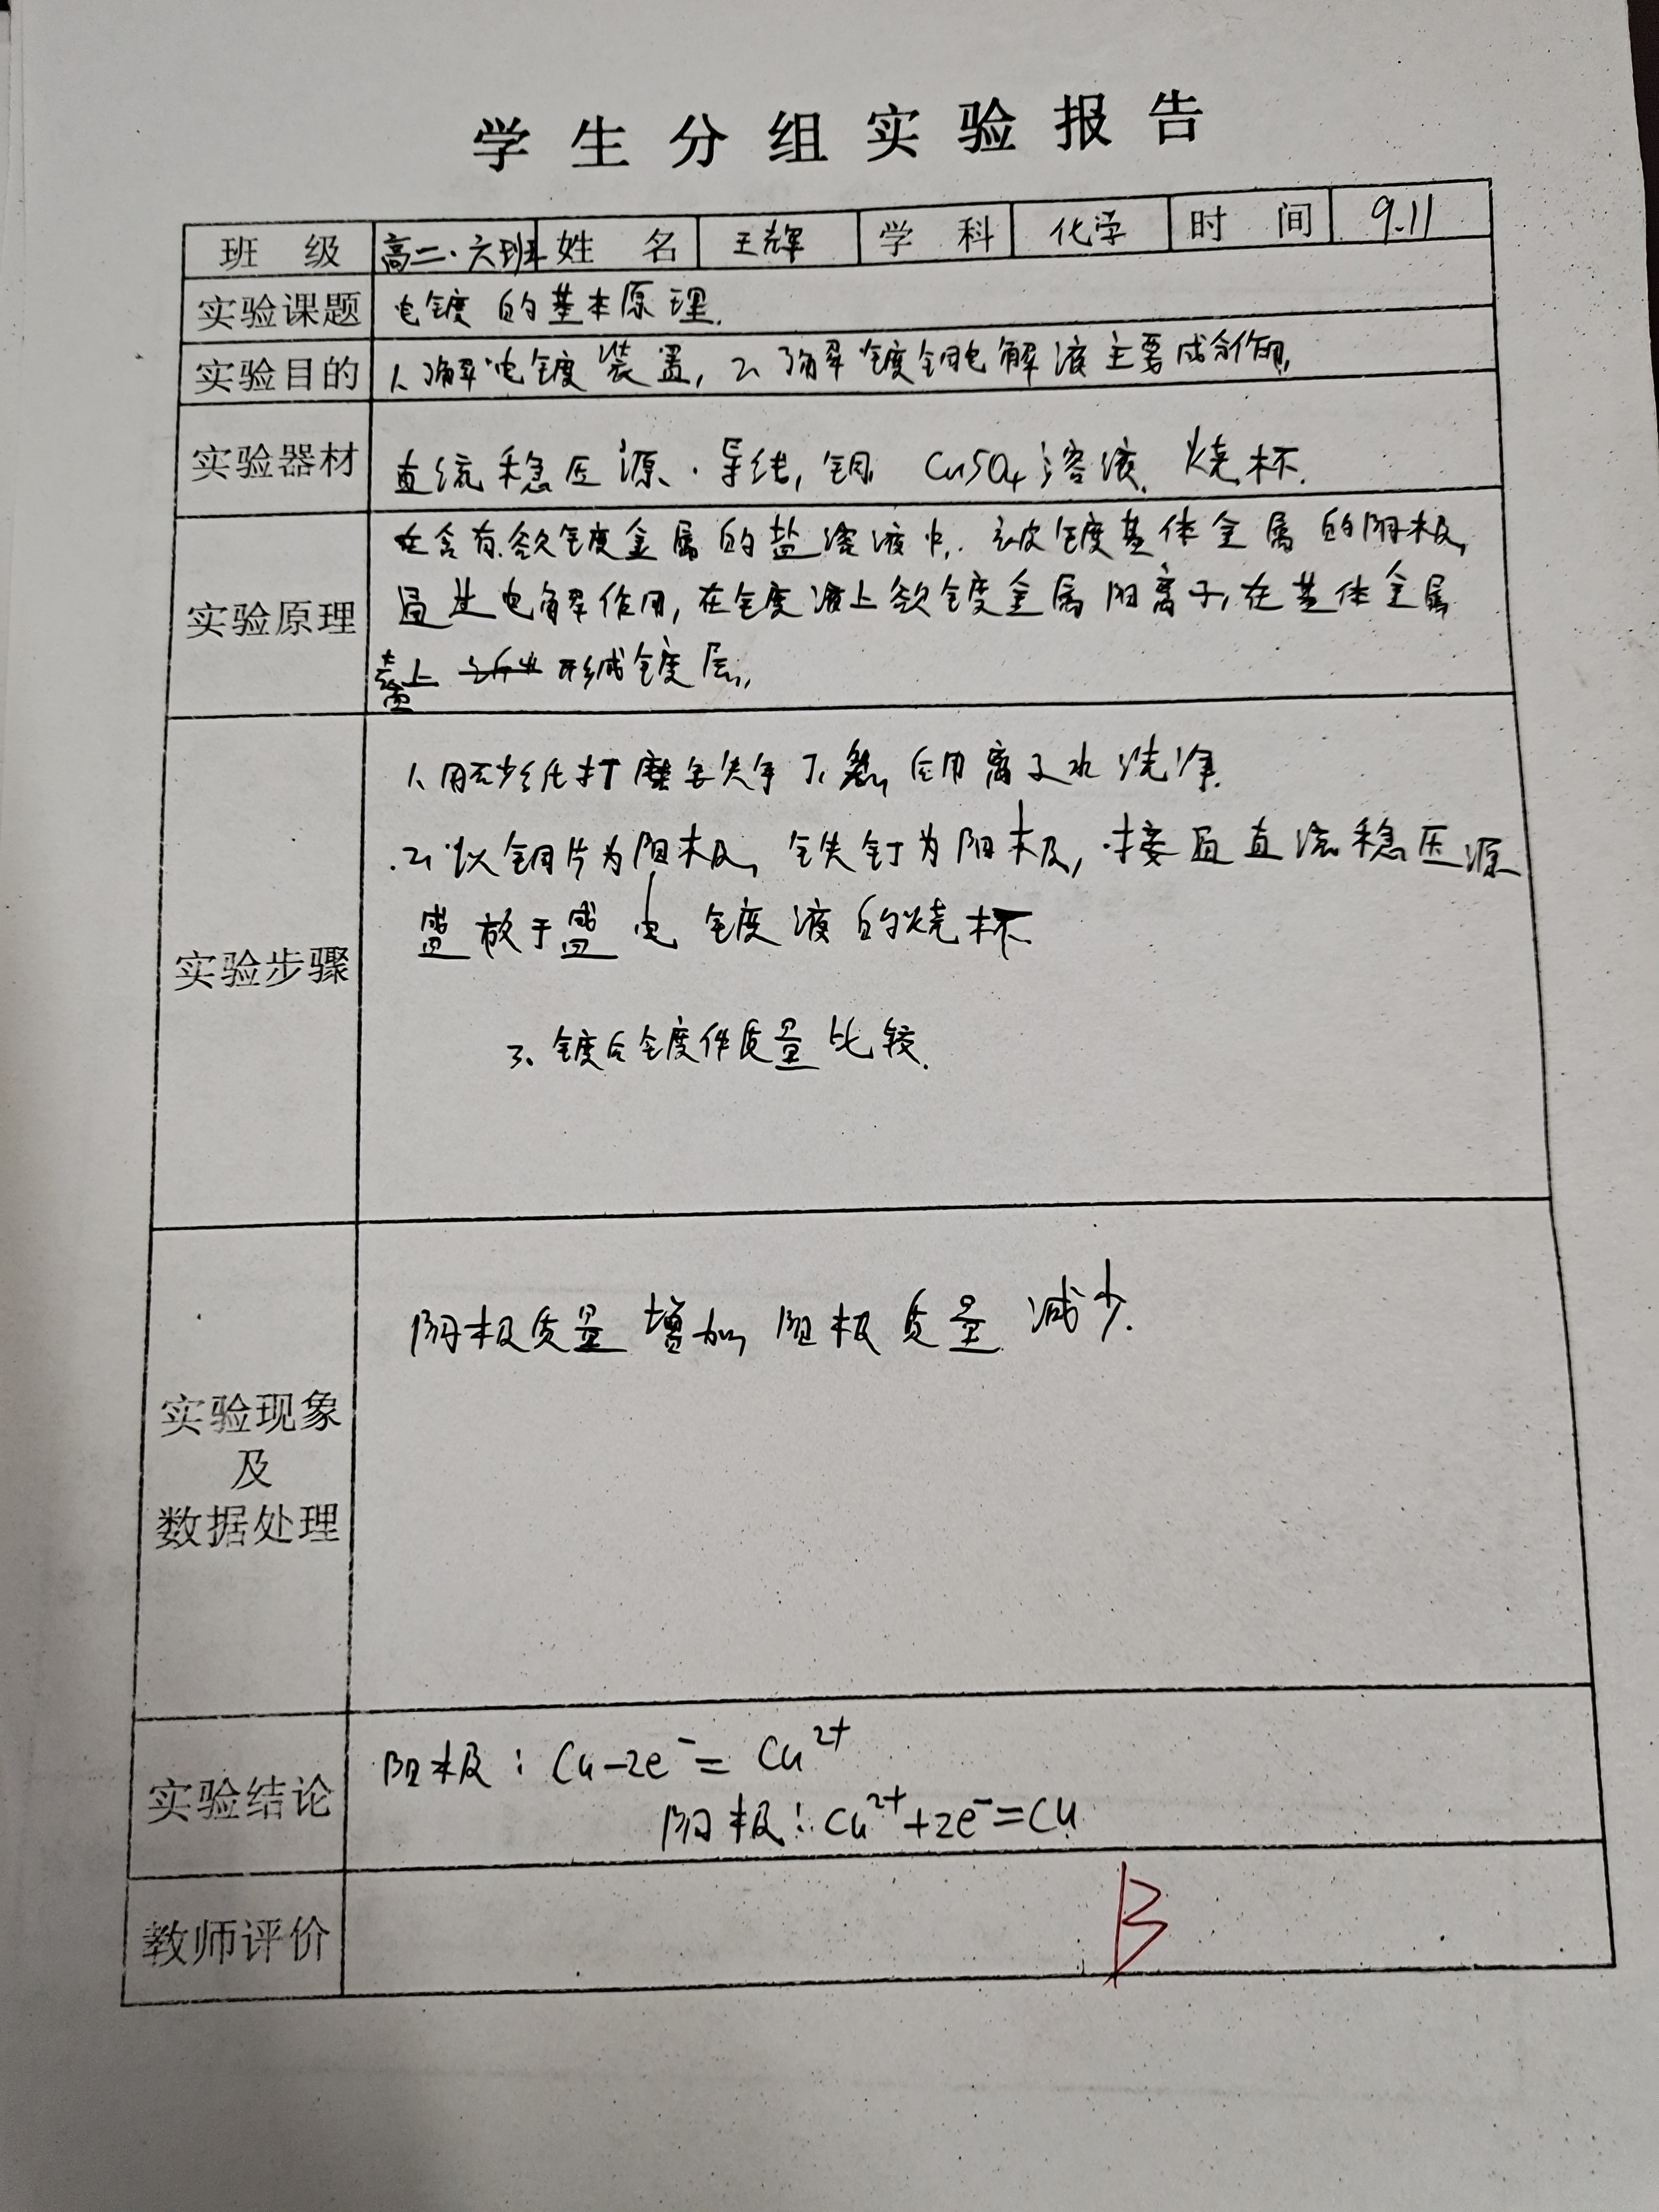 学生分组实验报告
班级 高二·六班 姓名 王辉 学科 化学 时间 9.11
实验课题 电镀的基本原理.
实验目的 1、了解电镀装置, 2、了解镀铜电解液主要成分作用,
实验器材 直流稳压源、导线, 铜 CuSO4溶液、烧杯.
实验原理 在含有欲镀金属的盐溶液中, 被镀基体金属的阴极,
通过电解作用, 在镀液上欲镀金属阳离子, 在基体金属
表面上 形成镀层,
实验步骤
1、用砂纸打磨 后用离子水洗净.
2、以铜片为阳极, 铁钉为阴极, 接通直流稳压源
盛放于盛电镀液的烧杯
3、镀后镀件质量比较.
实验现象
及
数据处理
阴极质量增加, 阳极质量减少.
实验结论
阳极: Cu-2e⁻= Cu²⁺
阴极: Cu²⁺+2e⁻=Cu
教师评价 B